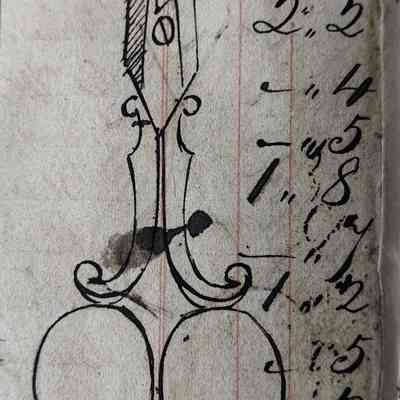 50
2 " 2
- " 4
- " 5
1 " 8
- " 9
1 " 2
- " 5